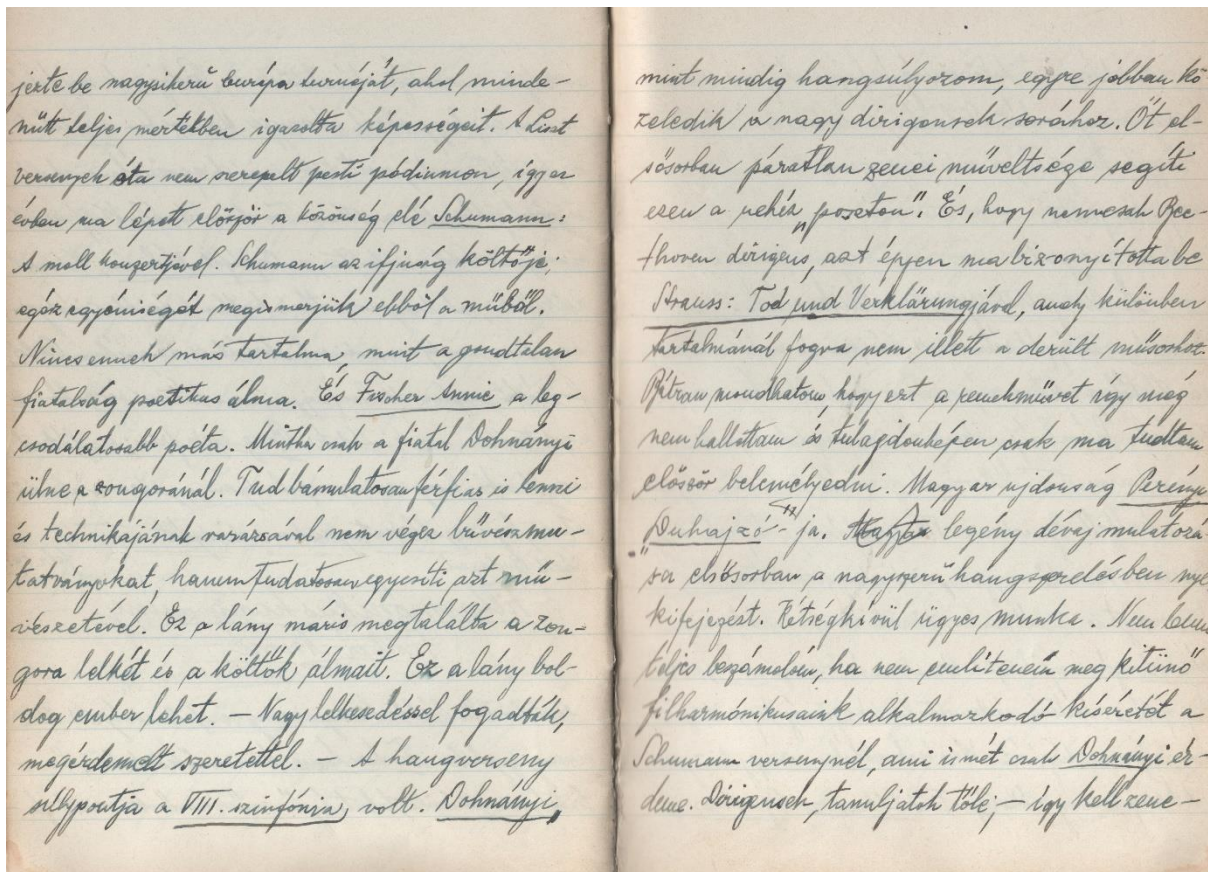 jerte be nagysikerű európa turnéját, ahol minde-
nütt teljes mértékben igazolta képességeit. A Liszt
versenyek óta nem szerepelt pesti pódiumon, így az
évben ma lépett először a közönség elé Schumann:
A moll konzertjével. Schumann az ifjuság költője,
egész egyéniségét megismerjük ebből a műből.
Nincs ennek más tartalma, mint a gondtalan
fiatalság poetikus álma. És Fischer Annie a leg-
csodálatosabb poéta. Mintha csak a fiatal Dohnányi
ülne a zongoránál. Tud bámulatosan férfias is lenni
és technikájának varázsával nem végez bűvészmu-
tatványokat, hanem tudatosan egyesíti azt mű-
vészetével. Ez a lány máris megtalálta a zon-
gora lelkét és a költők álmait. Ez a lány bol-
dog ember lehet. — Nagy lelkesedéssel fogadták,
megérdemelt szeretettel. — A hangverseny
súlypontja a VIII. szinfónia volt. Dohnányi,
mint mindig hangsúlyozom, egyre jobban kö
zeledik a nagy dirigensek sorához. Őt el-
sősorban páratlan zenei műveltsége segíti
ezen a nehéz „poszton". És, hogy nemcsak Bee-
thoven dirigens, azt épjen ma bizonyította be
Strauss: Tod und Verklärungjával, amely különben
tartalmánál fogva nem illett a derült műsorhoz.
Bátran mondhatom hogy ezt a remekművet így még
nem hallottam és tulagdonképen csak ma tudtam
először belemélyedni. Magyar ujdonság Perényi
„Duhajzó"-ja. legény dévaj mulatozá-
sa elsősorban a nagyszerű hangszerelésben nye
kifejezést. Kétségkívül ügyes munka. Nem lenne
teljes beszámolóm, ha nem említeném meg kitünő
filharmónikusaink alkalmazkodó kíséretét a
Schumann versenynél, ami ismét csak Dohnányi ér-
deme. Dirigensek, tanuljatok tőle, — így kell zene-